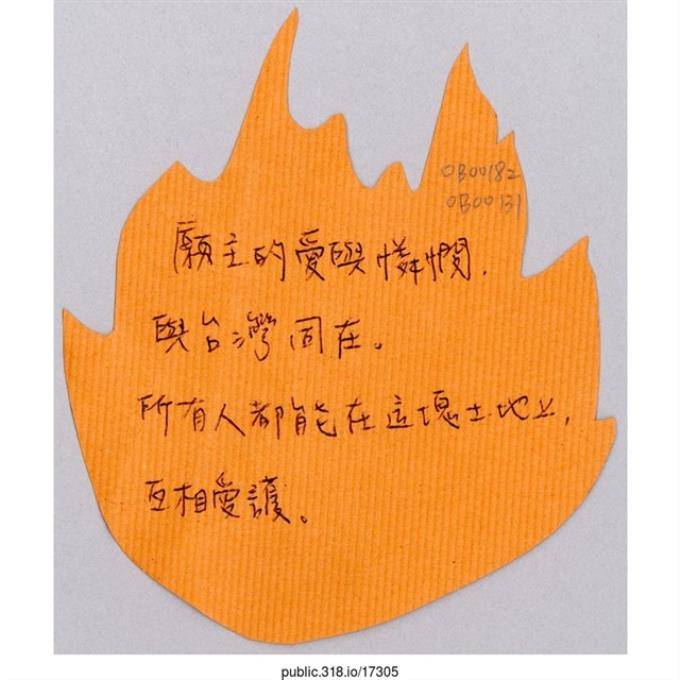 OB00182
OB00131
願主的愛與憐憫，
與台灣同在。
所有人都能在這塊土地上，
互相愛護。
public.318.io/17305